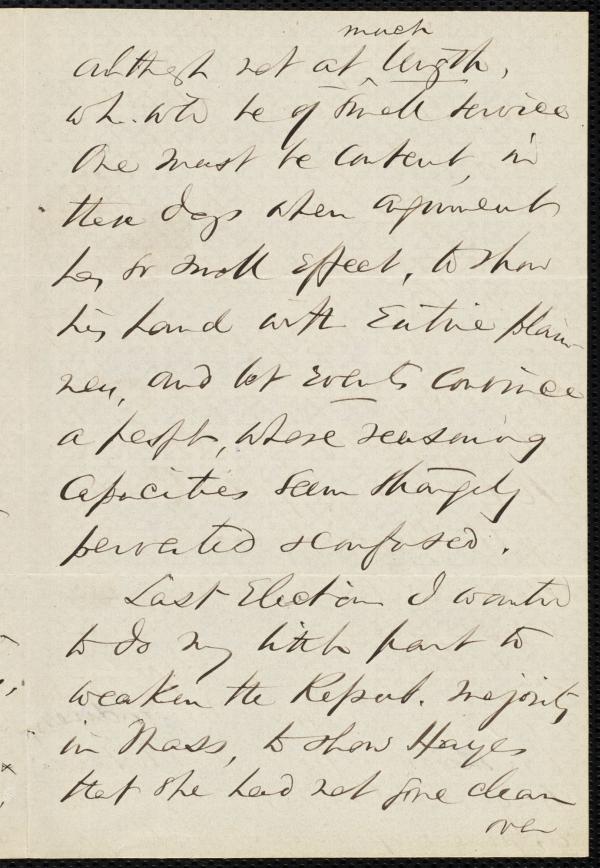 although not at much length,
wh. wld be of small service
One must be content, in
these days when argument
has so small effect, to show
his hand with entire plain-
ness, and let events convince
a people, whose reasoning
capacities seem strangely
perverted & confused.
Last Election I wanted
to do my little part to
weaken the Repub. majority
in Mass, to show Hayes
that she had not gone clean
over